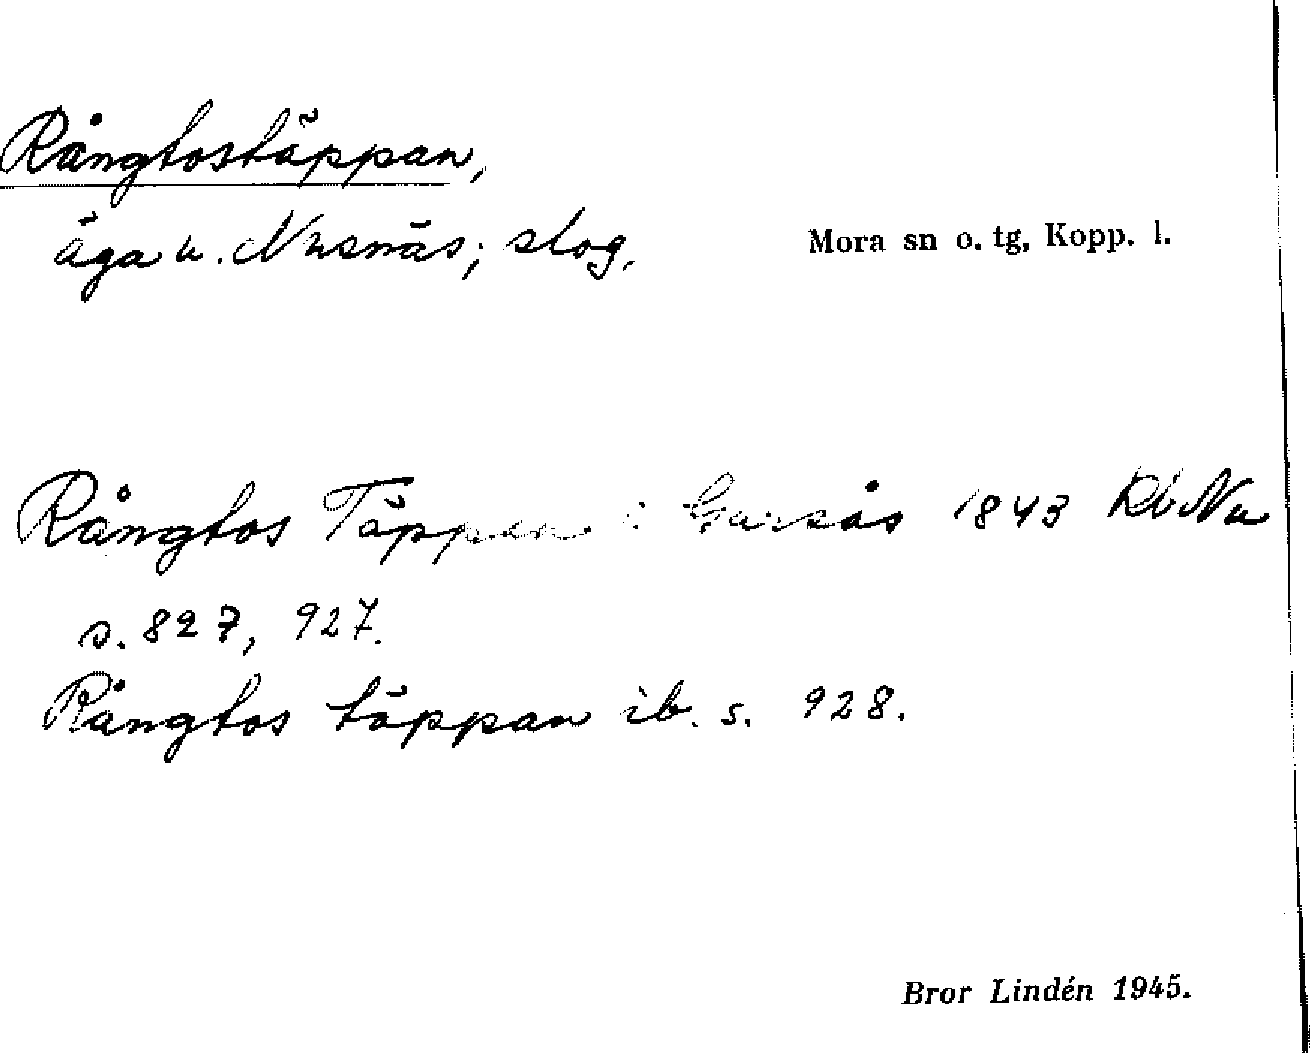 Rångtostäppan,
äga u. Nusnäs; slog.
Mora sn o. tg, Kopp. l.
Rångtos Täppan i Garsås 1843 Rb Nu
s. 827, 927.
Rångtos täppan ib. s. 928.
Bror Lindén 1945.